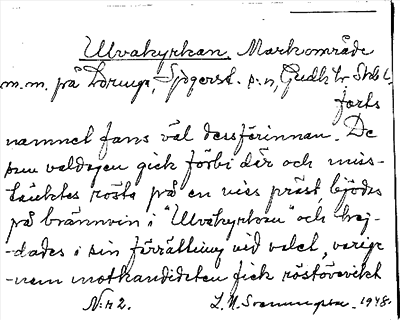 Ulvakyrkan, Markområde
m.m. på Dorunge, Sjogerst. s:n, Gudh
forts
namnet fans väl dessförinnan. De
som valdagen gick förbi där och miss-
tänktes rösta på en viss präst, bjöds
på brännvin i "Ulvakyrkan" och hej-
-dades i sin förrättning vid valet, varige-
-nom motkandidaten fick röstövervikt
N:r 2. L.N. 1948.